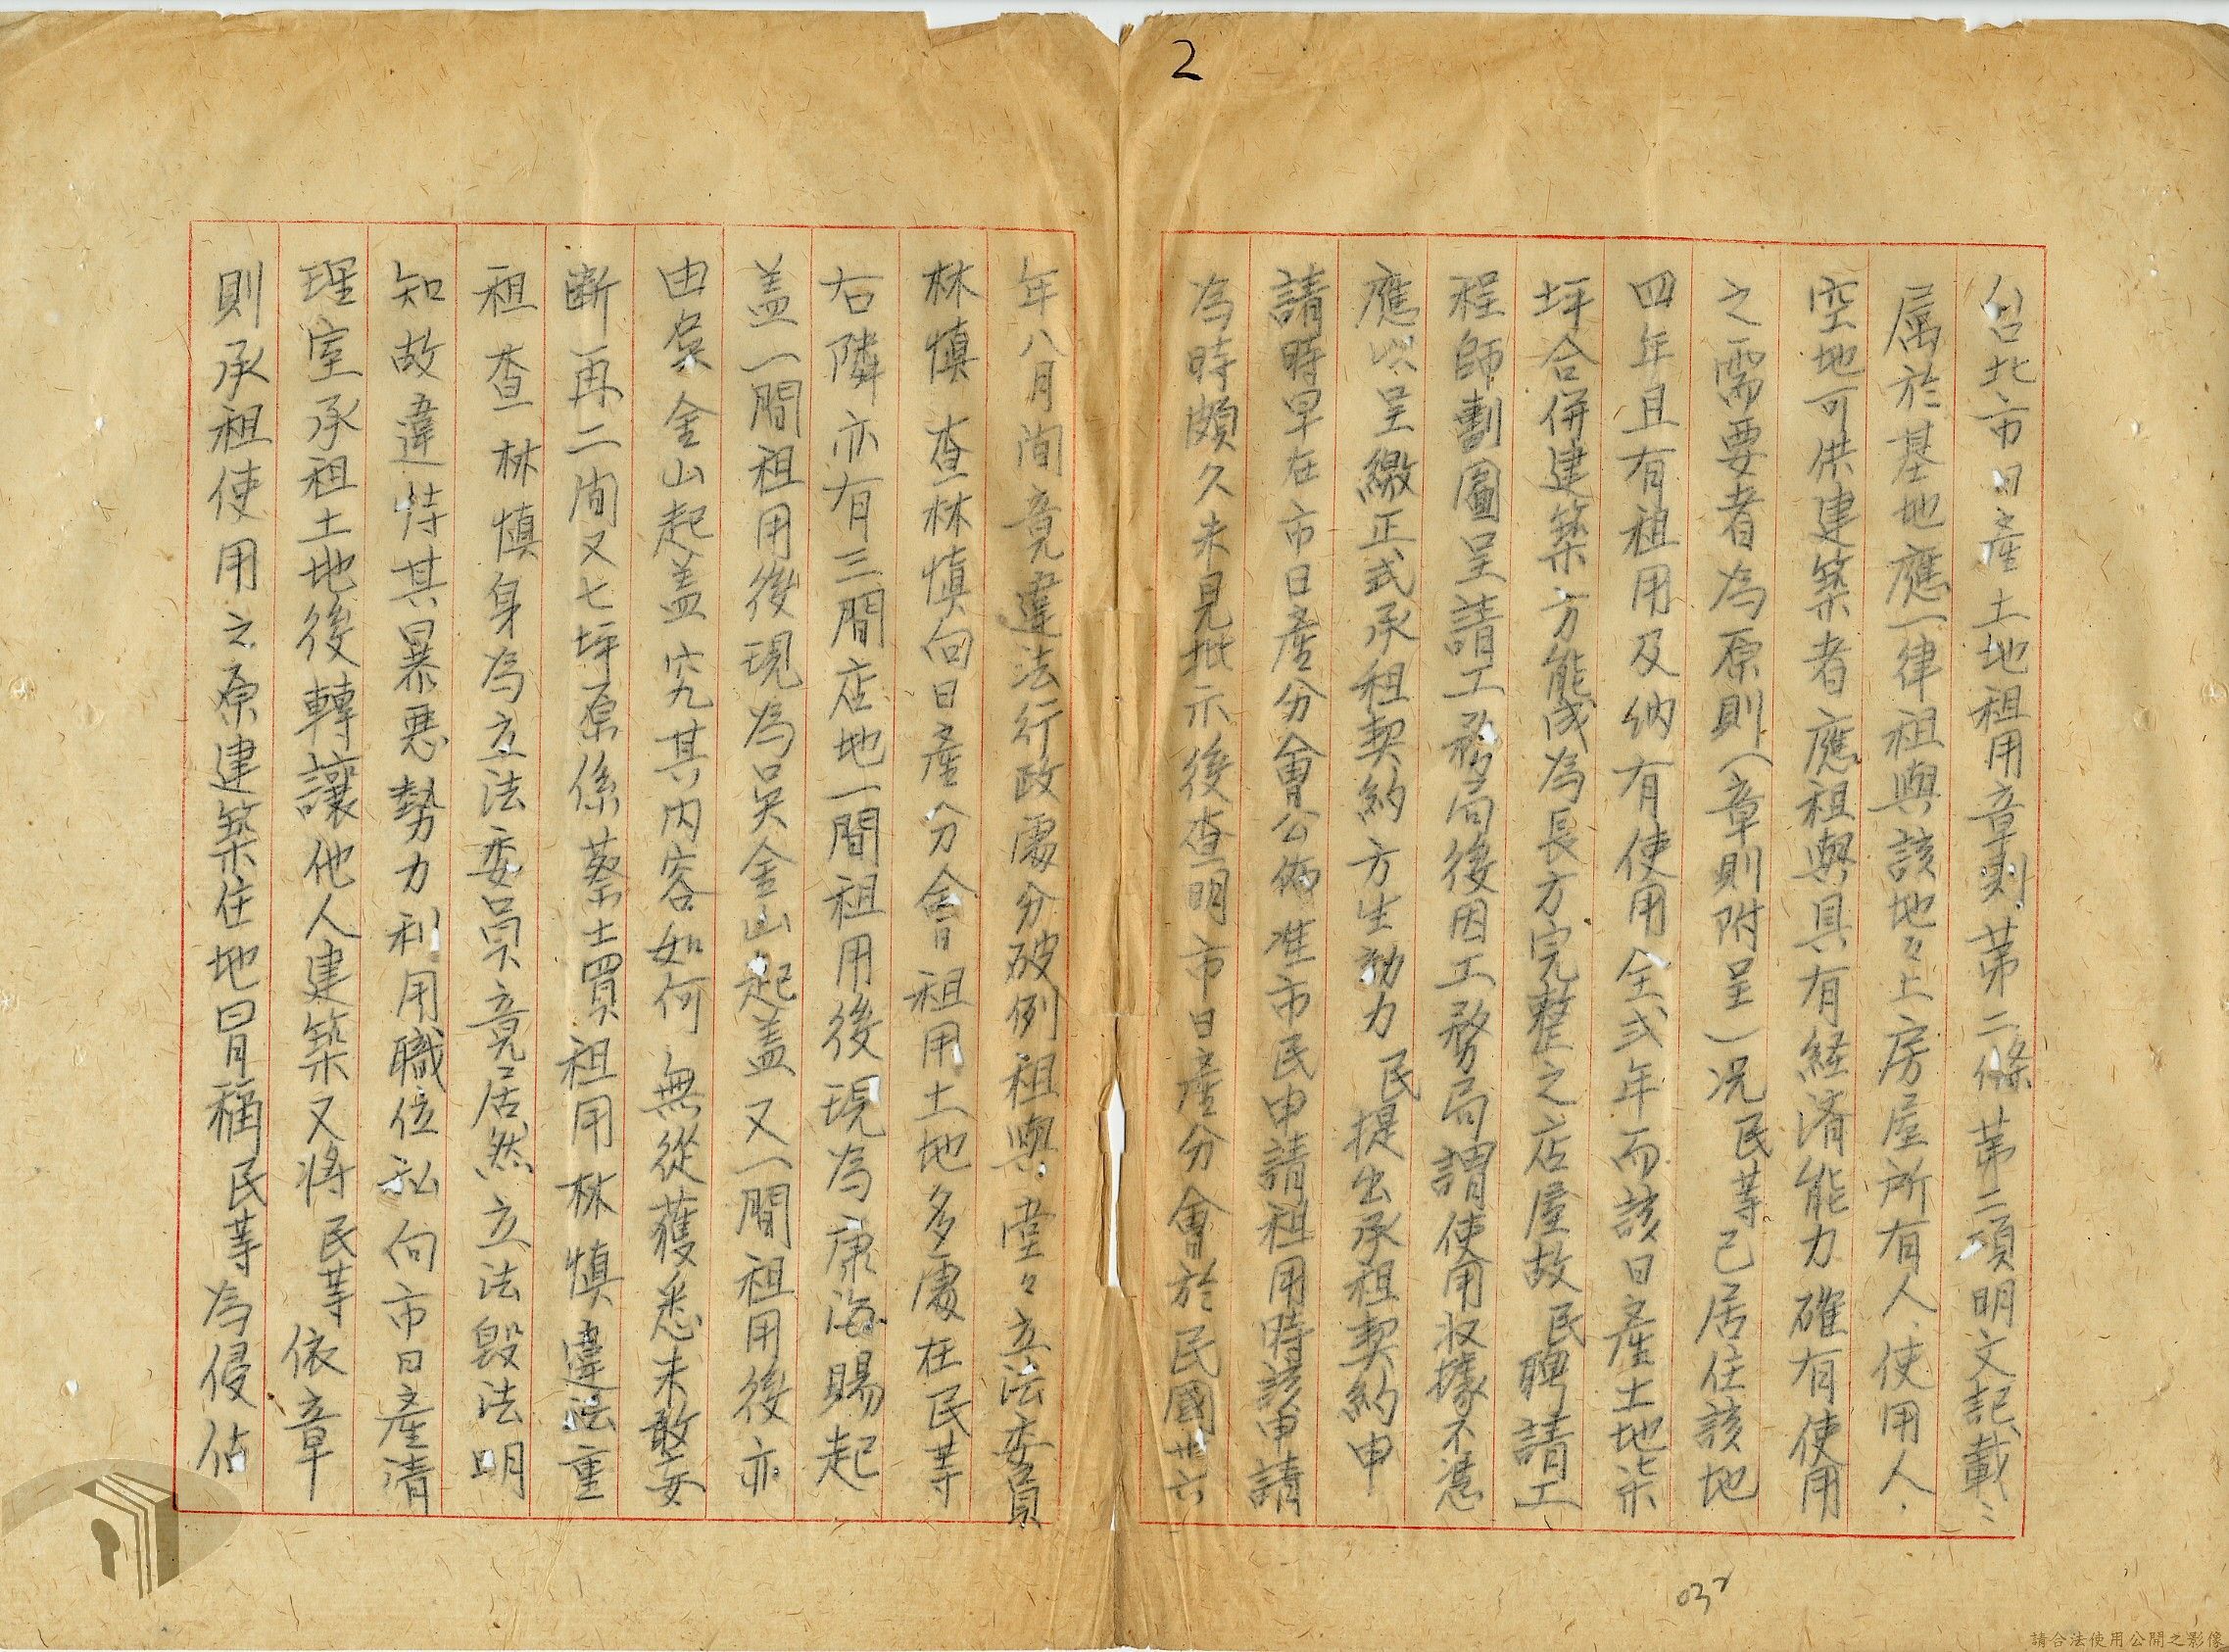 2
台北市日產土地租用章則第二條第二項明文記載：
屬於基地應一律租與該地々上房屋所有人、使用人、
空地可供建築者應租與具有経済能力確有使用
之需要者為原則（章則附呈）况民等己居住該地
四年且有租用及纳有使用全弍年而該日產土地柒
坪合併建築方能成為長方完整之店屋故民聘請工
程師劃圖呈請工務局後因工務局謂使用収據不憑
應以呈繳正式承租契約方生効力民提出承租契約申
請時早在市日產分會公佈准市民申請租用時該申請
為時頗久未見批示後查明市日產分會於民國卅六
年八月间竟違法行政處分破例租與堂々立法委員
林慎查林慎向日產分會租用土地多處在民等
右隣亦有三間店地一間租用後現為康海賜起
盖一間租用後現為吳金山起盖又一間租用後亦
由吳金山起盖究其内容如何無從獲悉未敢妄
断再二间又七坪原係蔡士買租用林慎違法重
租查林慎身為立法委員竟居然立法毀法明
知故違恃其暴惡勢力利用職位私向市日產清
理室承租土地後轉讓他人建築又将民等依章
則承租使用之原建築住地冒稱民等為侵佔
032
請合法使用公開之影像